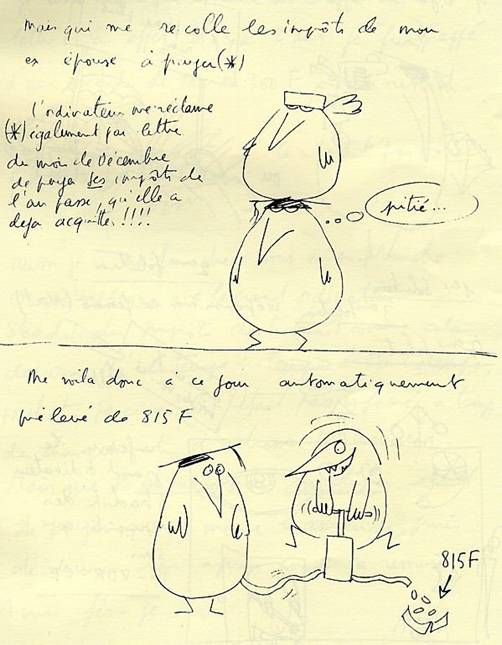 Mais qui me recolle les impôts de mon
ex épouse à payer (*)
l'ordinateur me réclame
(*) également par lettre
du mois de Décembre
de payer ses impôts de
l'an passé, qu'elle a
déja acquittés !!!!
pitié...
Me voila donc à ce jour automatiquement
prélevé de 815F
815F